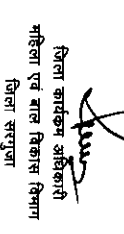 जिला कार्यक्रम अधिकारी
महिला एवं बाल विकास विभाग
जिला सरगुजा